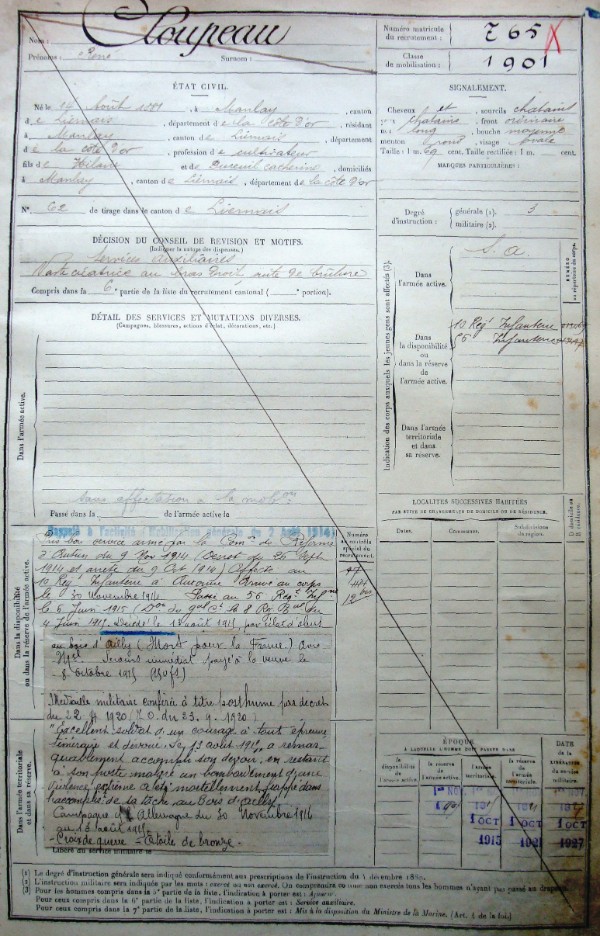 Nom : Loupeau
Prénoms : René Surnom :
Numéro matricule du recrutement : 765
Classe de mobilisation : 1901
ÉTAT CIVIL.
Né le 14 Août 1881, à Manlay, canton
de Liernais, département de la Côte d'or, résidant
à Manlay, canton de Liernais, département
de la Côte d'or, profession de cultivateur
fils de et de Catherine, domiciliés
à Manlay, canton de Liernais, département de la Côte d'or
N° 62 de tirage dans le canton de Liernais
SIGNALEMENT.
Cheveux et sourcils chatains
yeux chatains, front ordinaire
nez long, bouche moyenne
menton rond, visage ovale
Taille : 1 m. cent. Taille rectifiée : 1 m. cent.
MARQUES PARTICULIÈRES :
Degré d'instruction : générale (1). 3
militaire (2).
DÉCISION DU CONSEIL DE REVISION ET MOTIFS.
Services auxiliaires
au bras droit, suite de brûlure
Compris dans la 6e partie de la liste du recrutement cantonal ( portion).
DÉTAIL DES SERVICES ET MUTATIONS DIVERSES.
(Campagnes, blessures, actions d'éclat, décorations, etc.)
Dans l'armée active.
sans affectation à la mobon
Passé dans la de l'armée active le
Indication des corps auxquels les jeunes gens sont affectés (3).
Dans l'armée active. S. a.
Dans la disponibilité ou dans la réserve de l'armée active.
10 Régt Infanterie
56 Infanterie
Dans l'armée territoriale et dans sa réserve.
LOCALITÉS SUCCESSIVES HABITÉES
PAR SUITE DE CHANGEMENTS DE DOMICILE OU DE RÉSIDENCE.
Dates. Communes. Subdivisions de région. D domicile ou R résidence.
Dans la disponibilité ou dans la réserve de l'armée active.
Rappelé à l'activité (Mobilisation générale du 2 Août 1914)
bon service armé par la Comon de Réforme
d'Autun du 9 Nov 1914 (Décret du 26 Sept
1914 et arrêté du 9 Oct 1914) Affecté au
10 Régt Infanterie à Auxonne Arrivé au corps
le 30 Novembre 1914 Passé au 56 Régt Infie
le 6 Juin 1915
4 Juin 1915. Décédé le 13 août 1915, par éclat d'obus
au bois d'Ailly (Mort pour la France)
Secours immédiat payé à la veuve le
8 octobre 1915 (150 f)
Médaille militaire conférée à titre posthume par décret
du 22. 9 1920 J.O. du 23. 9. 1920
"Excellent soldat d'un courage à toute épreuve
téméraire et dévoué. Le 13 août 1915, a remar-
quablement accompli son devoir, en restant
à son poste malgré un bombardement d'une
violence extrême a été mortellement frappé dans
l'accomplt de la tâche au Bois d'Ailly.
Campagne cl Allemagne du 30 Novembre 1914
au 13 août 1915
Croix de guerre - étoile de bronze.
Dans l'armée territoriale et dans sa réserve.
ÉPOQUE
À LAQUELLE L'HOMME DOIT PASSER DANS
la disponibilité de l'armée active. la réserve de l'armée active. l'armée territoriale. la réserve de l'armée territoriale.
DATE DE LA LIBÉRATION du service militaire.
1er NOV.
1 OCT 1915
1 OCT 1921
1 OCT 1927
(1) Le degré d'instruction générale sera indiqué conformément aux prescriptions de l'instruction du 5 décembre 1889.
(2) L'instruction militaire sera indiquée par les mots : exercé ou non exercé. On comprendra comme non exercés tous les hommes n'ayant pas passé au drapeau.
(3) Pour les hommes compris dans la 1re partie de la liste, l'indication à porter est :
Pour ceux compris dans la 6e partie de la liste, l'indication à porter est : Service auxiliaire.
Pour ceux compris dans la 7e partie de la liste, l'indication à porter est : Mis à la disposition du Ministre de la Marine. (Art. 4 de la loi.)